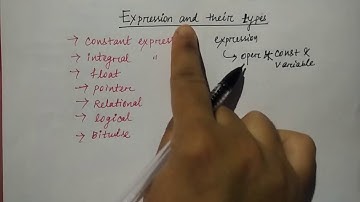 Expression and their types
→ Constant express
→ integral "
→ float
→ pointer
→ Relational
→ logical
→ Bitwise
expression
↳ oper const &
variable